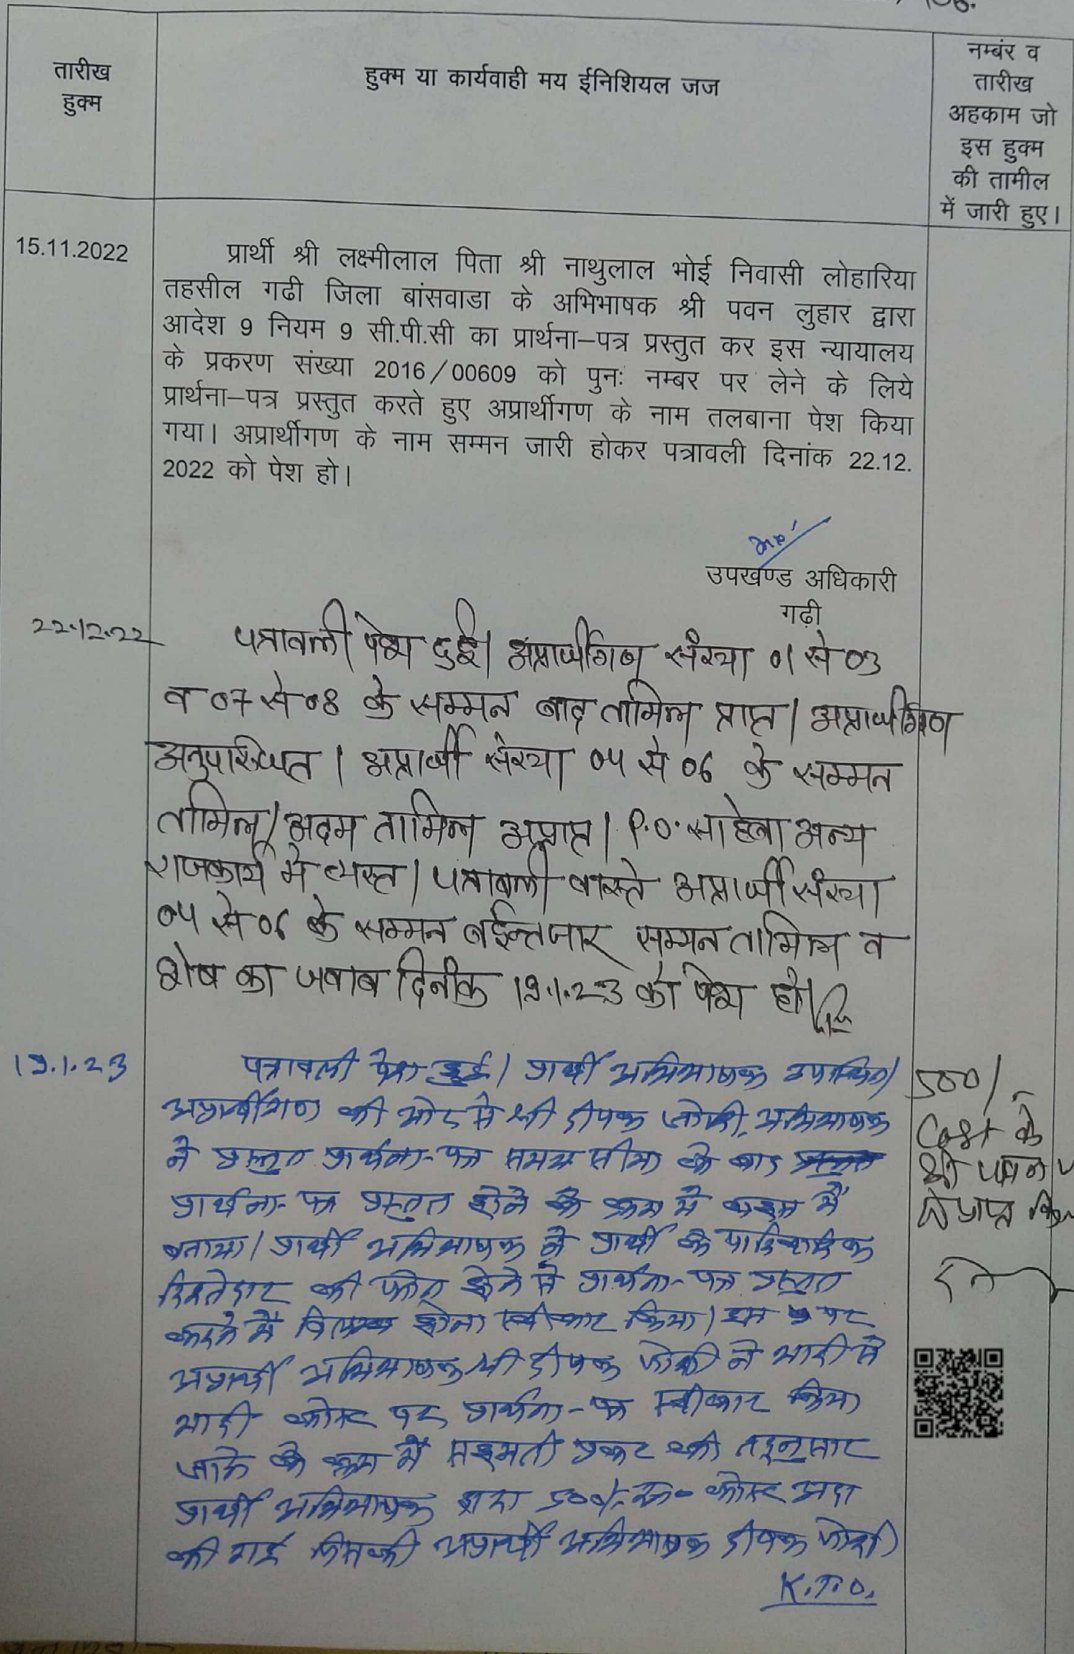 तारीख
हुक्म
हुक्म या कार्यवाही मय ईनिशियल जज
नम्बंर व
तारीख
अहकाम जो
इस हुक्म
की तामील
में जारी हुए।
15.11.2022
प्रार्थी श्री लक्ष्मीलाल पिता श्री नाथुलाल भोई निवासी लोहारिया
तहसील गढी जिला बांसवाडा के अभिभाषक श्री पवन लुहार द्वारा
आदेश 9 नियम 9 सी.पी.सी का प्रार्थना–पत्र प्रस्तुत कर इस न्यायालय
के प्रकरण संख्या 2016/00609 को पुनः नम्बर पर लेने के लिये
प्रार्थना–पत्र प्रस्तुत करते हुए अप्रार्थीगण के नाम तलबाना पेश किया
गया। अप्रार्थीगण के नाम सम्मन जारी होकर पत्रावली दिनांक 22.12.
2022 को पेश हो।
उपखण्ड अधिकारी
गढ़ी
22.12.22
पत्रावली पेश हुई। अप्रार्थीगण संख्या 01 से 03
व 07 से 08 के सम्मन बाद तामिल प्राप्त। अप्रार्थीगण
अनुपस्थित। अप्रार्थी संख्या 04 से 06 के सम्मन
तामिल/अदम तामिल अप्राप्त। P.O. साहेबा अन्य
राजकार्य मे व्यस्त। पत्रावली वास्ते अप्रार्थी संख्या
04 से 06 के सम्मन बईन्तजार सम्मन तामिल व
शेष का जवाब दिनांक 19.1.23 को पेश हो।
19.1.23
पत्रावली पेश हुई। प्रार्थी अभिभाषक उपस्थित।
अप्रार्थीगण की ओर से श्री दीपक जोशी, अभिभाषक
ने प्रस्तुत प्रार्थना-पत्र समय सीमा के बाद
प्रार्थना-पत्र प्रस्तुत होने के क्रम में बहस में
बताया। प्रार्थी अभिभाषक ने प्रार्थी के पारिवारिक
रिश्तेदार की होने से प्रार्थना-पत्र प्रस्तुत
करने में विलम्ब होना स्वीकार किया। इस पर
अप्रार्थी अभिभाषक श्री दीपक जोशी ने भारी से
भारी कोस्ट पर प्रार्थना-पत्र स्वीकार किया
जाने के क्रम में सहमती प्रकट की तद्नुसार
प्रार्थी अभिभाषक द्वारा 500/- रू० कोस्ट अदा
की गई जिसकी अप्रार्थी अभिभाषक दीपक जोशी
K.T.O.
500/-
Cost के
श्री पवन
प्राप्त